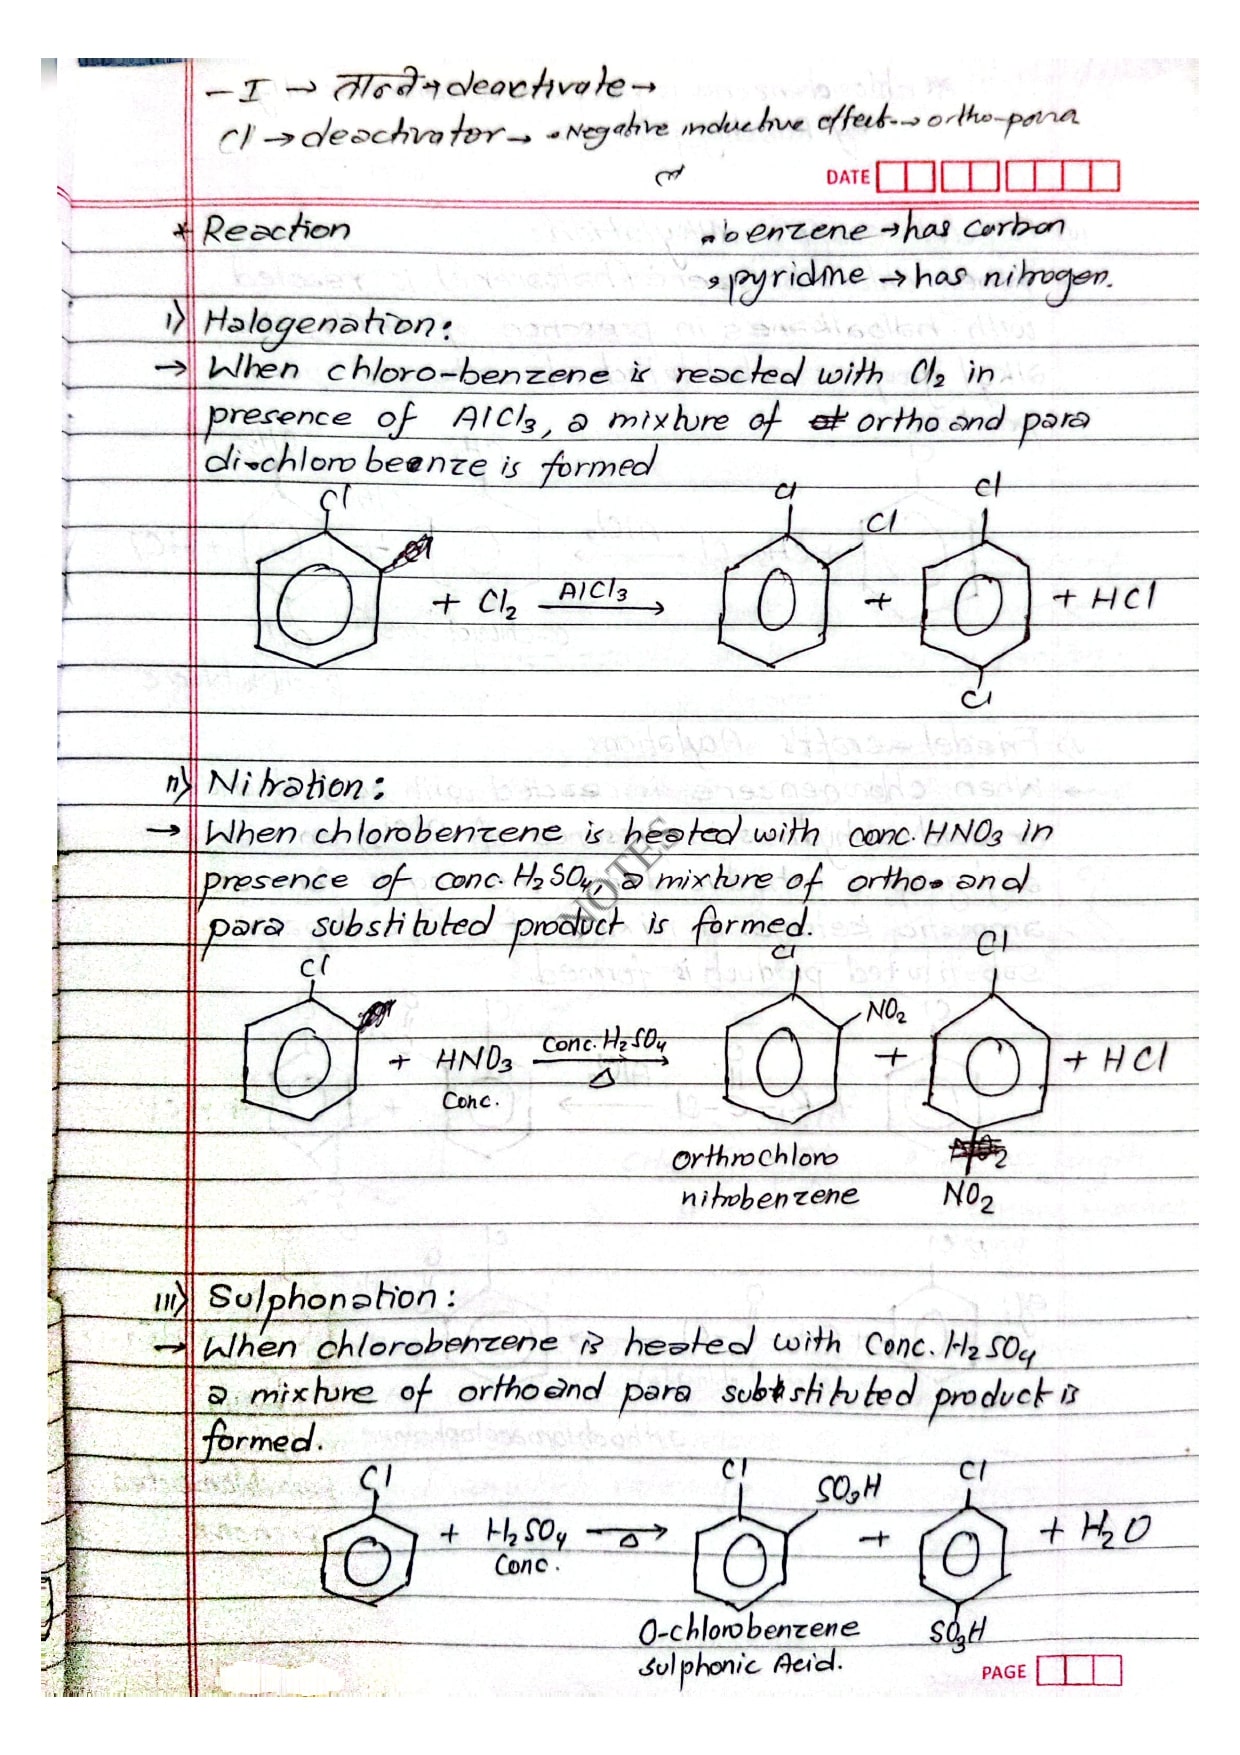 - I → तान्ने → deactivate →
Cl → deactivator → • Negative inductive effect → ortho-para
DATE
* Reaction
• benzene → has carbon
• pyridine → has nitrogen.
i) Halogenation:
→ When chloro-benzene is reacted with Cl2 in
presence of AlCl3, a mixture of ortho and para
di-chlorobeenze is formed
Cl Cl Cl Cl
+ Cl2 AlCl3 → + + HCl
Cl
ii) Nitration:
→ When chlorobenzene is heated with conc. HNO3 in
presence of conc. H2SO4, a mixture of ortho and
para substituted product is formed.
NOTES
Cl Cl NO2 Cl
+ HNO3 Conc. H2SO4 → + + HCl
Conc. Δ
Orthrochloro
nitrobenzene NO2
iii) Sulphonation:
→ When chlorobenzene is heated with Conc. H2SO4
a mixture of ortho and para substituted product is
formed.
Cl Cl SO3H Cl
+ H2SO4 → Δ + + H2O
Conc.
O-chlorobenzene SO3H
sulphonic Acid.
PAGE